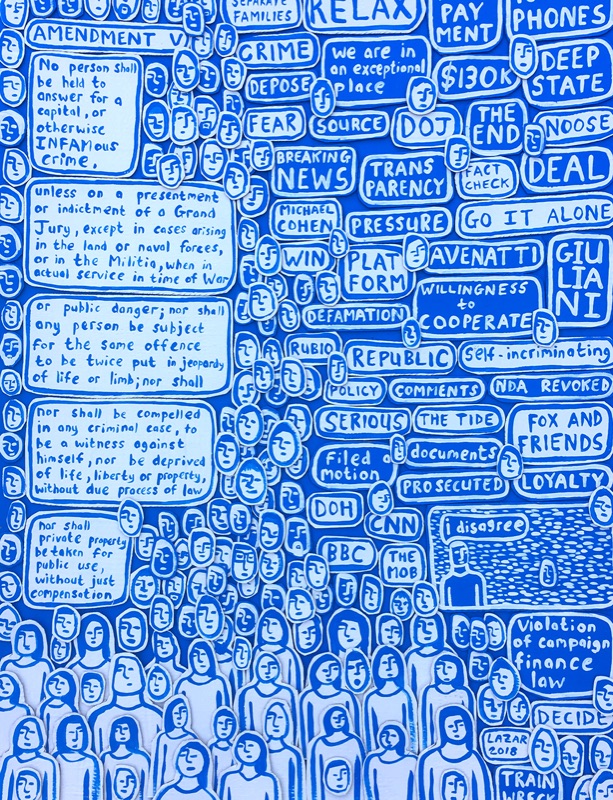 AMENDMENT V
No person shall
be held to
answer for a
capital, or
otherwise
INFAMOUS
crime,
unless on a presentment
or indictment of a Grand
Jury, except in cases arising
in the land or naval forces,
or in the Militia, when in
actual service in time of War
or public danger; nor shall
any person be subject
for the same offence
to be twice put in jeopardy
of life or limb; nor shall
nor shall be compelled
in any criminal case, to
be a witness against
himself, nor be deprived
of life, liberty or property,
without due process of law
nor shall
private property
be taken for
public use,
without just
compensation
SEPARATE
FAMILIES
RELAX
PAY
MENT
PHONES
CRIME
we are in
an exceptional
place
$130K
DEEP
STATE
DEPOSE
FEAR
SOURCE
DOJ
THE
END
NOOSE
BREAKING
NEWS
TRANS
PARENCY
FACT
CHECK
DEAL
MICHAEL
COHEN
PRESSURE
GO IT ALONE
WIN
PLAT
FORM
AVENATTI
GIU
LIA
NI
WILLINGNESS
to
COOPERATE
DEFAMATION
RUBIO
REPUBLIC
self-incriminating
POLICY
COMMENTS
NDA REVOKED
SERIOUS
THE TIDE
FOX AND
FRIENDS
Filed a
motion
documents
PROSECUTED
LOYALTY
DOH
CNN
i disagree
BBC
THE
MOB
Violation
of campaign
finance
law
DECIDE
LAZAR
2018
TRAIN
WRECK